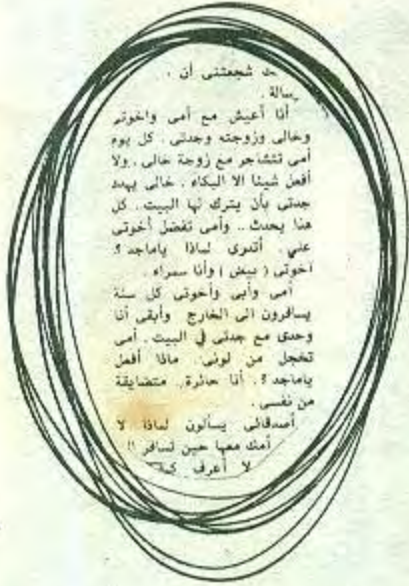 شجعتنى أن .
رسالة .
أنا أعيش مع أمى واخوتى
وخالى وزوجته وجدتى . كل يوم
أمى تتشاجر مع زوجة خالى . ولا
أفعل شيئا الا البكاء . خالى يهدد
جدتى بأن يترك لها البيت . كل
هذا يحدث .. وأمى تفضل أخوتى
على . أتدرى لماذا ياماجد ؟
أخوتى ( بيض ) وأنا سمراء .
أمى وأبى وأخوتى كل سنة
يسافرون الى الخارج وأبقى أنا
وحدى مع جدتى في البيت . أمى
تخجل من لونى . ماذا أفعل
ياماجد ؟. أنا حائرة . متضايقة
من نفسى .
أصدقائى يسألون لماذا لا
أمك معها حين تسافر !!
لا أعرف